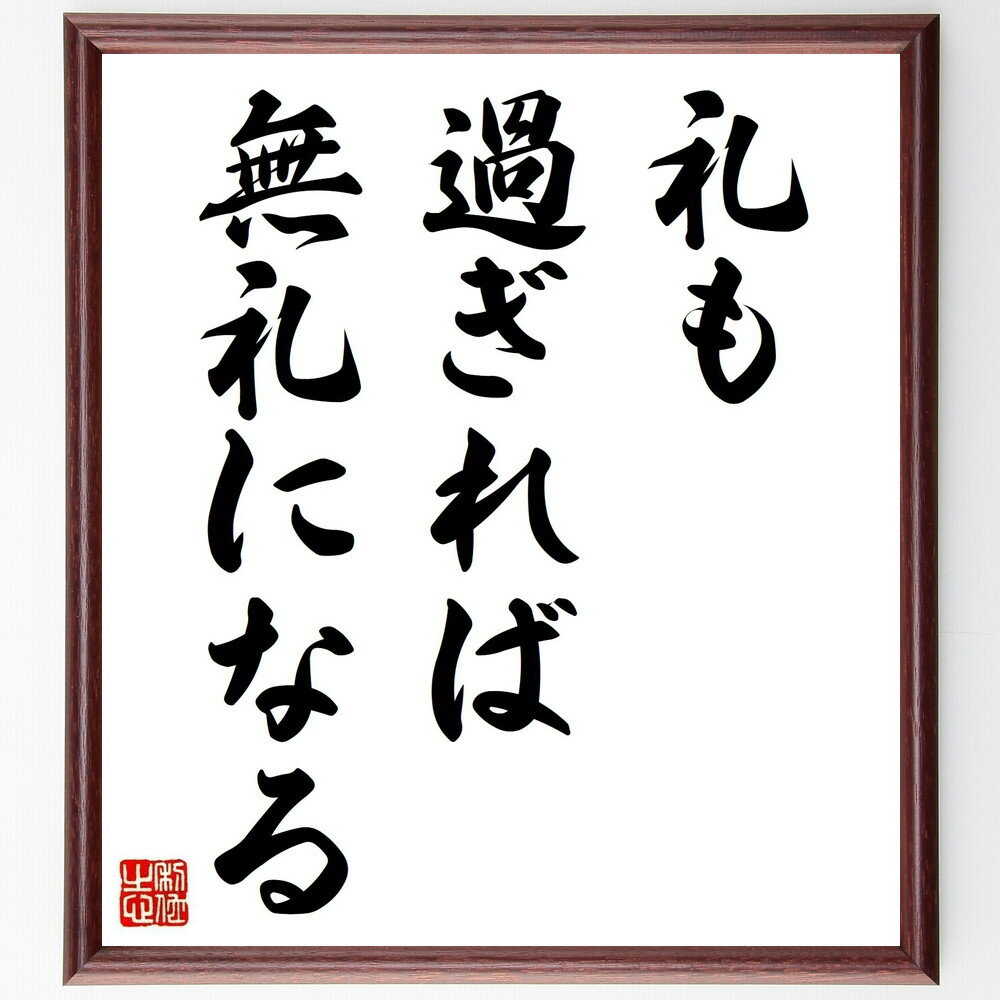 礼も
過ぎれば
無礼になる